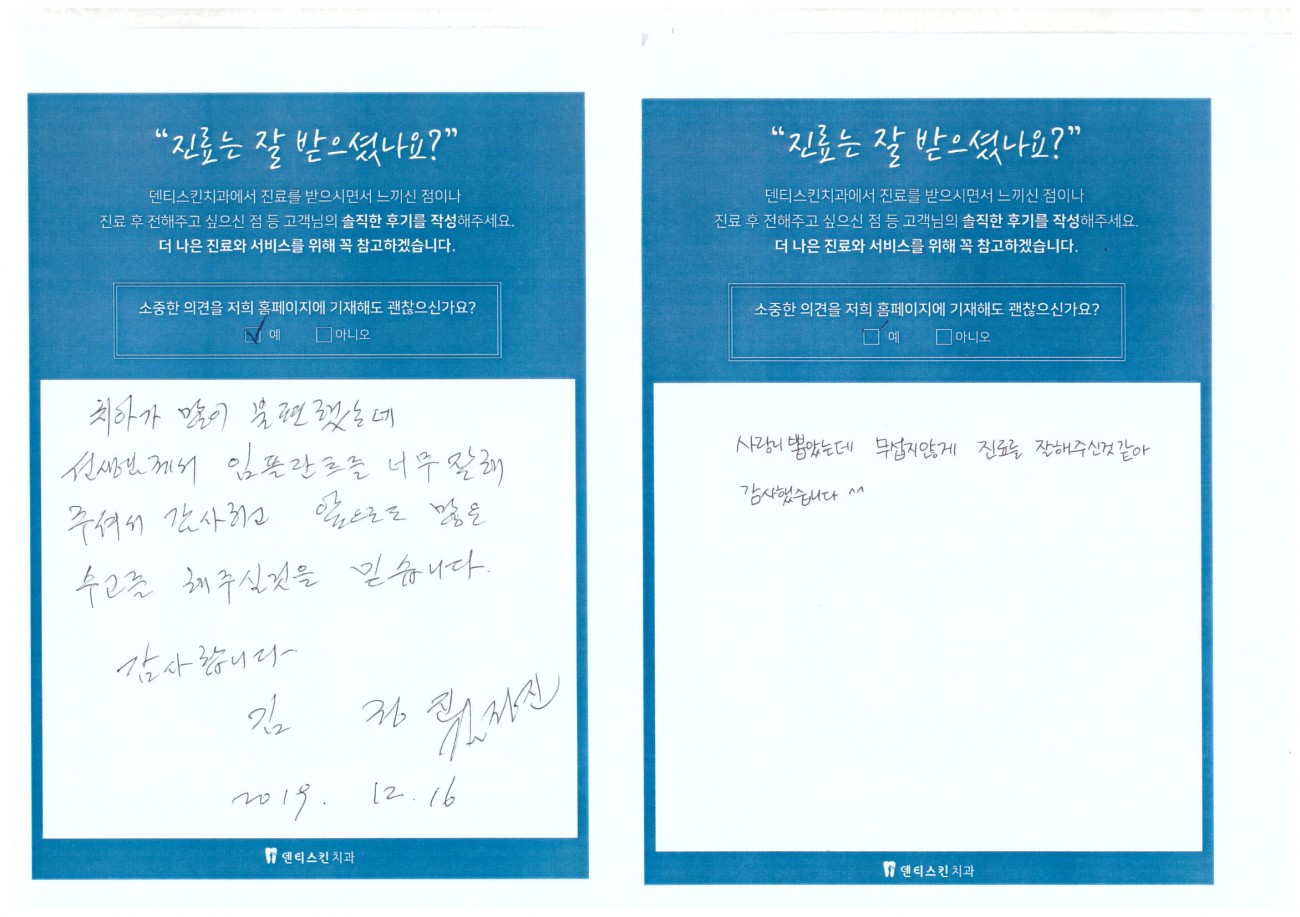 “진료는 잘 받으셨나요?”
덴티스킨치과에서 진료를 받으시면서 느끼신 점이나
진료 후 전해주고 싶으신 점 등 고객님의 솔직한 후기를 작성해주세요.
더 나은 진료와 서비스를 위해 꼭 참고하겠습니다.
소중한 의견을 저희 홈페이지에 기재해도 괜찮으신가요?
예 아니오
치아가 많이 불편했는데
선생님께서 임플란트를 너무 잘해
주셔서 감사하고 앞으로도 많은
수고를 해주실것을 믿습니다.
감사합니다
김 정
2019. 12. 16
덴티스킨치과
“진료는 잘 받으셨나요?”
덴티스킨치과에서 진료를 받으시면서 느끼신 점이나
진료 후 전해주고 싶으신 점 등 고객님의 솔직한 후기를 작성해주세요.
더 나은 진료와 서비스를 위해 꼭 참고하겠습니다.
소중한 의견을 저희 홈페이지에 기재해도 괜찮으신가요?
예 아니오
사랑니 뽑았는데 무섭지않게 진료를 잘해주신것같아
감사했습니다 ^^
덴티스킨치과